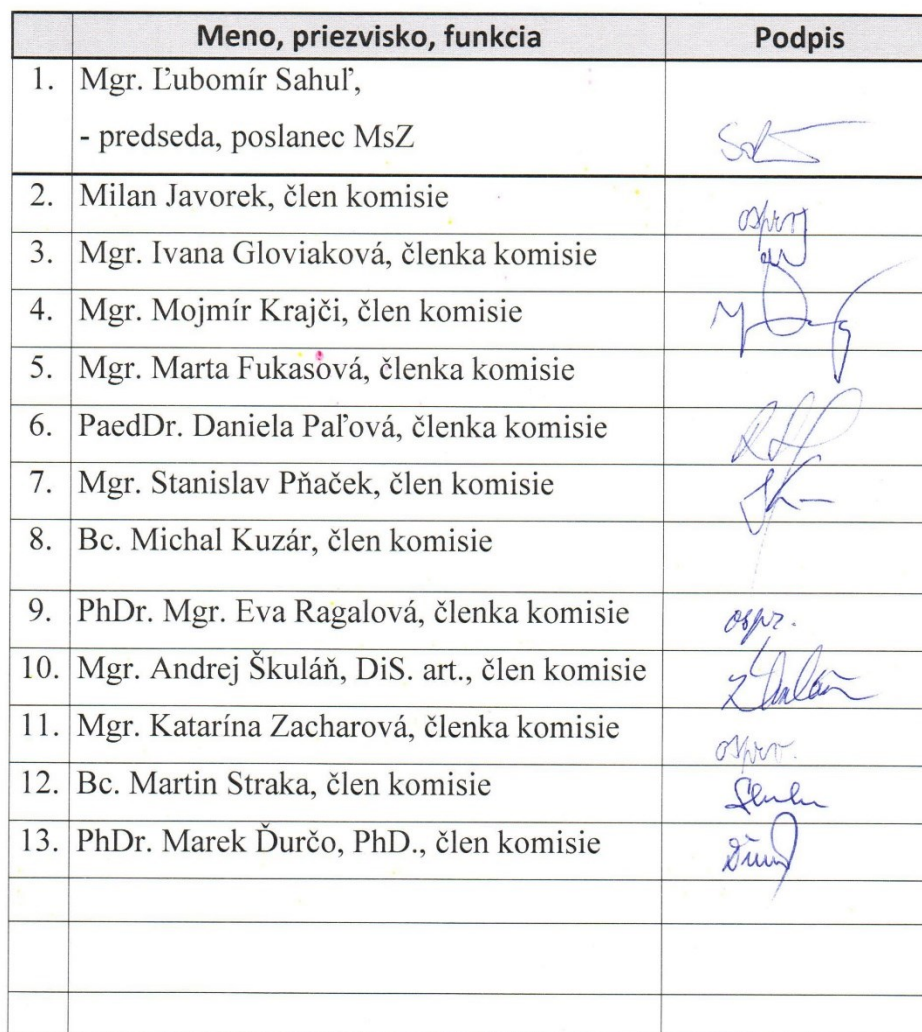 Meno, priezvisko, funkcia Podpis
1. Mgr. Ľubomír Sahuľ,
- predseda, poslanec MsZ
2. Milan Javorek, člen komisie
3. Mgr. Ivana Gloviaková, členka komisie
4. Mgr. Mojmír Krajči, člen komisie
5. Mgr. Marta Fukasová, členka komisie
6. PaedDr. Daniela Paľová, členka komisie
7. Mgr. Stanislav Pňaček, člen komisie
8. Bc. Michal Kuzár, člen komisie
9. PhDr. Mgr. Eva Ragalová, členka komisie ospr.
10. Mgr. Andrej Škuláň, DiS. art., člen komisie
11. Mgr. Katarína Zacharová, členka komisie
12. Bc. Martin Straka, člen komisie
13. PhDr. Marek Ďurčo, PhD., člen komisie